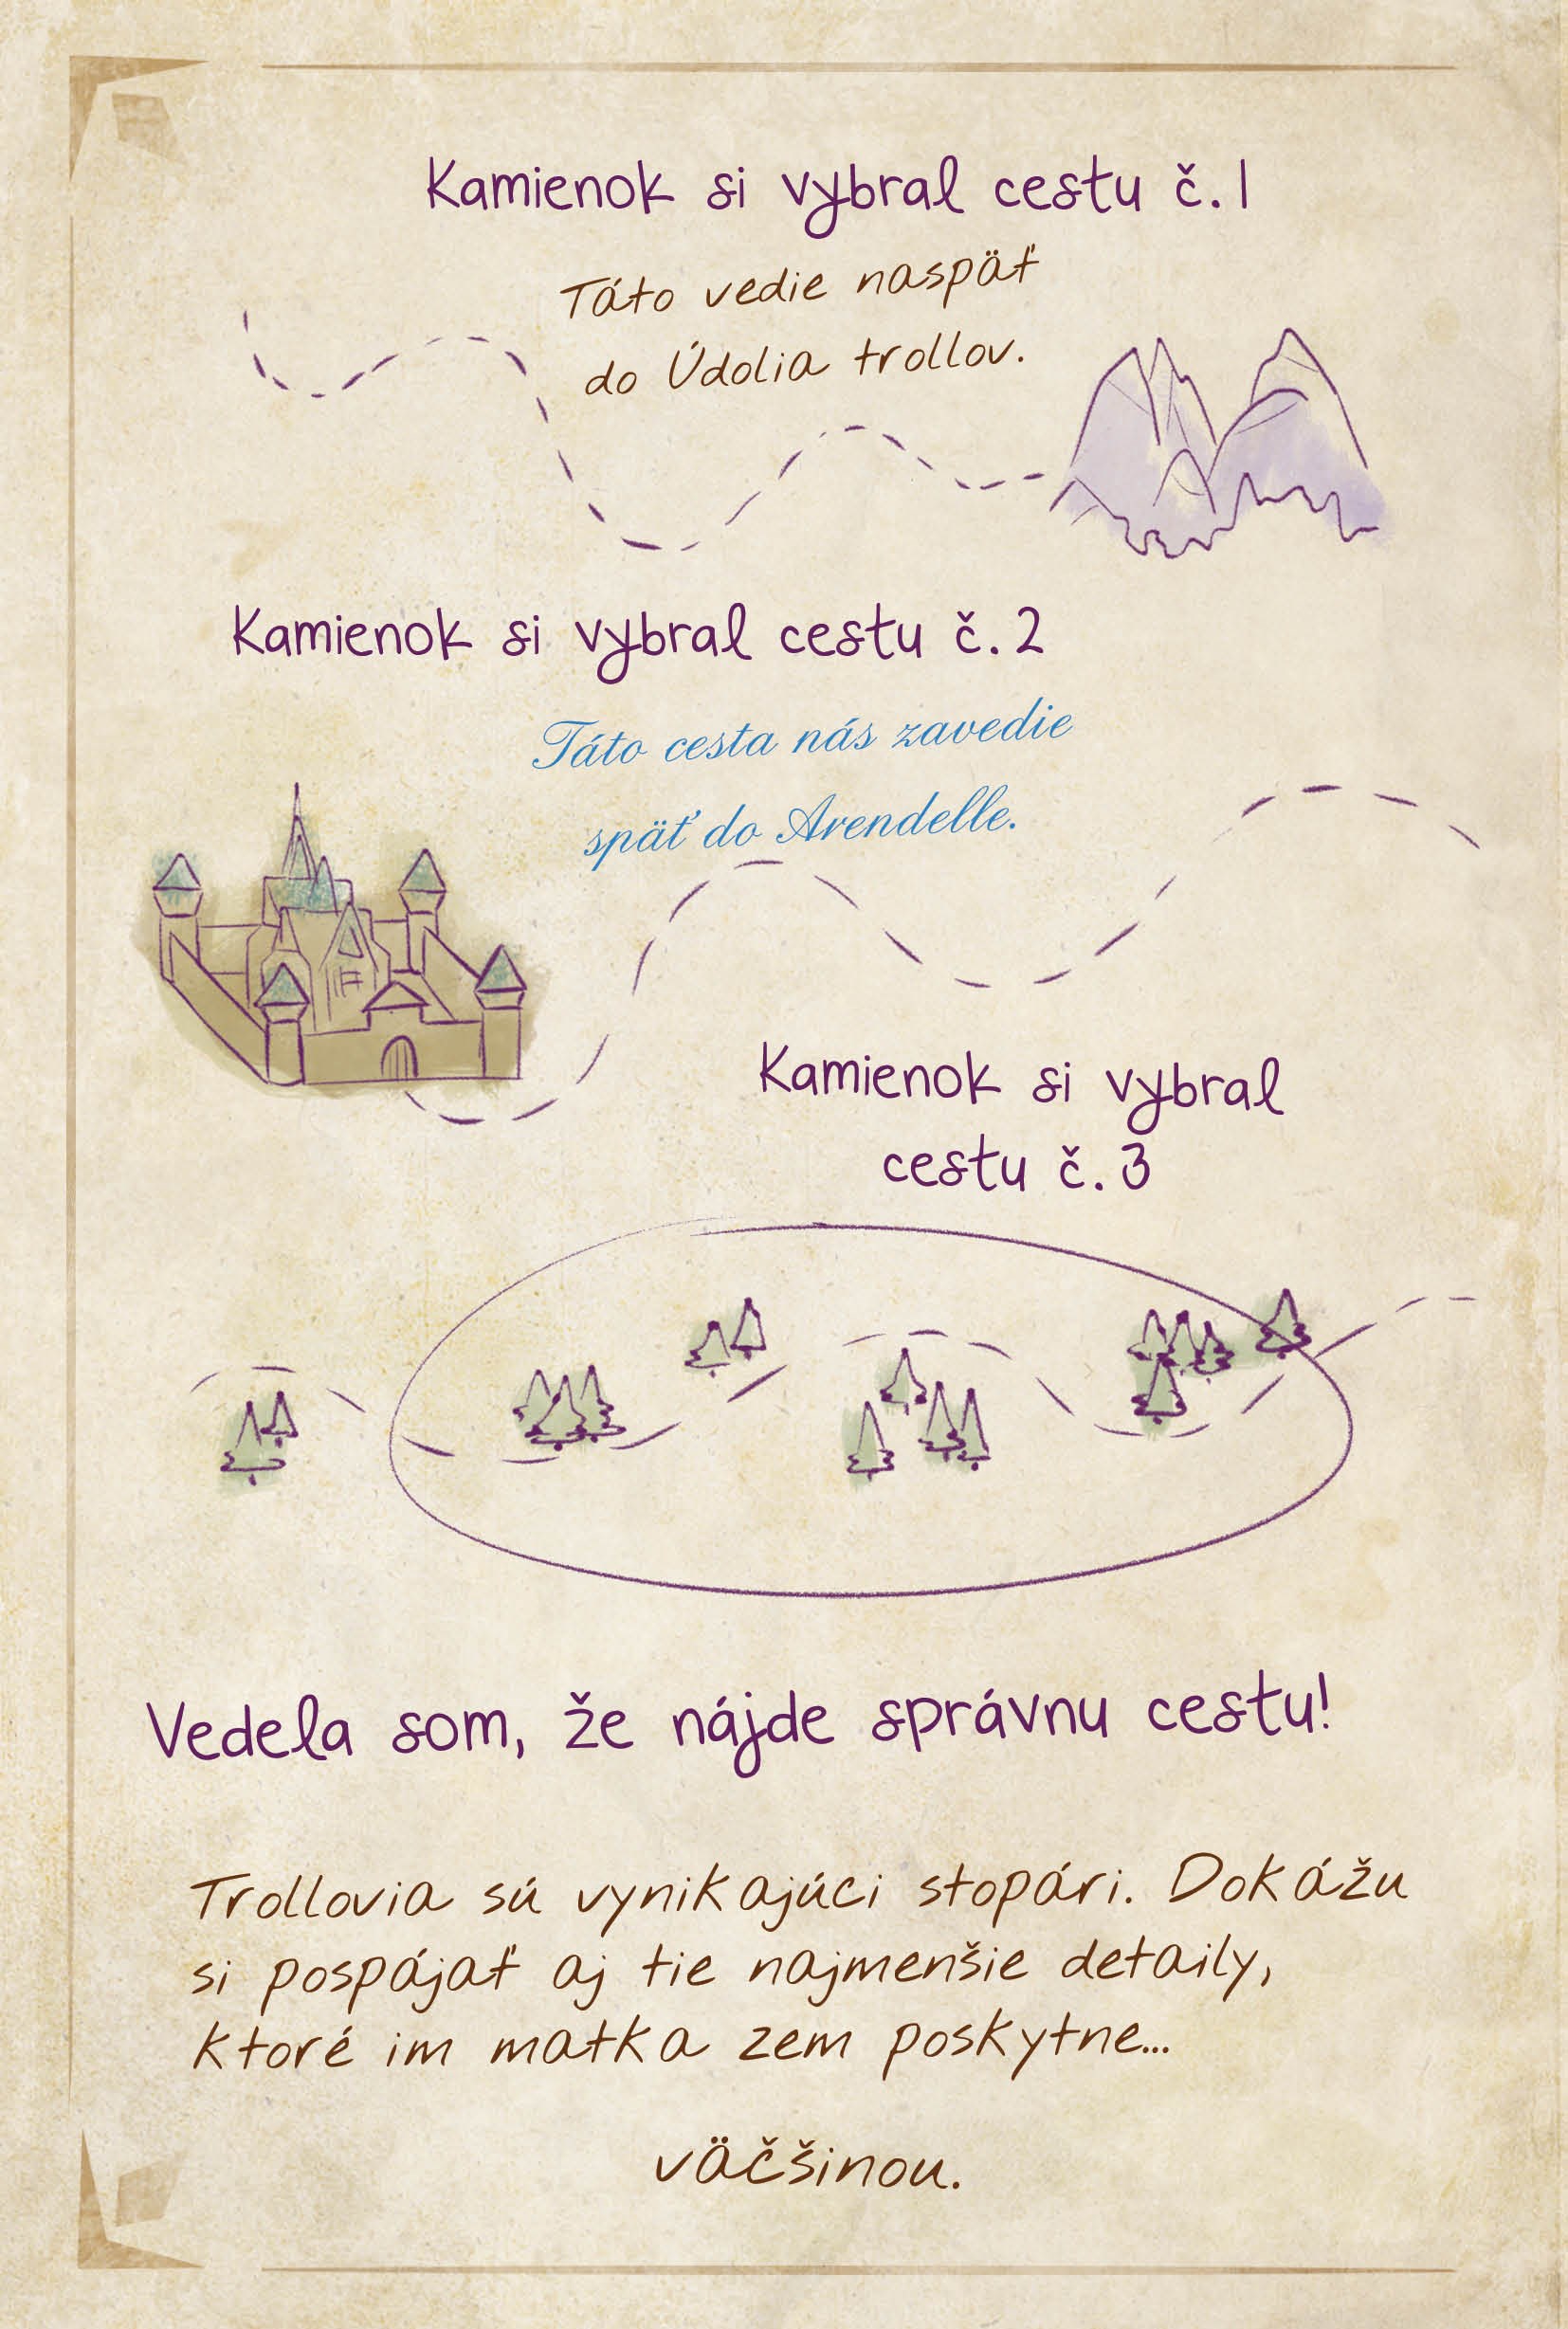 Kamienok si vybral cestu č. 1
Táto vedie naspäť
do Údolia trollov.
Kamienok si vybral cestu č. 2
Táto cesta nás zavedie
späť do Arendelle.
Kamienok si vybral
cestu č. 3
Vedela som, že nájde správnu cestu!
Trollovia sú vynikajúci stopári. Dokážu
si pospájať aj tie najmenšie detaily,
ktoré im matka zem poskytne...
väčšinou.